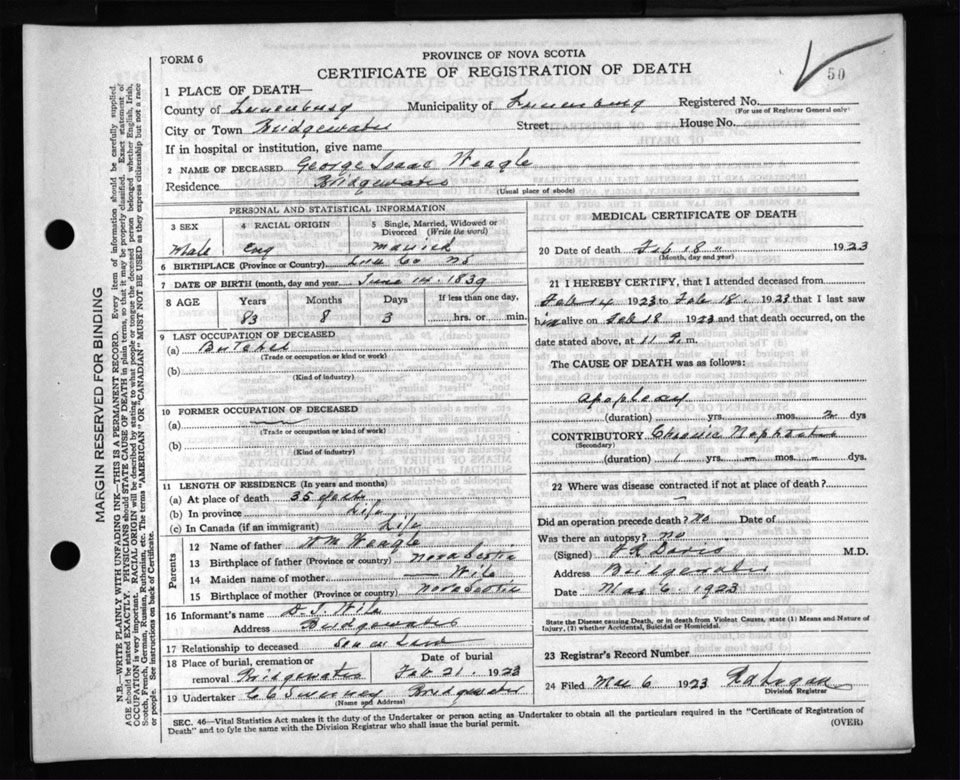 FORM 6
PROVINCE OF NOVA SCOTIA
CERTIFICATE OF REGISTRATION OF DEATH
50
1 PLACE OF DEATH—
County of Lunenburg Municipality of Lunenburg Registered No.
(For use of Registrar General only)
City or Town Bridgewater Street House No.
If in hospital or institution, give name
2 NAME OF DECEASED George Isaac Weagle
Residence Bridgewater
(Usual place of abode)
PERSONAL AND STATISTICAL INFORMATION
3 SEX 4 RACIAL ORIGIN 5 Single, Married, Widowed or Divorced (Write the word)
Male Eng Married
6 BIRTHPLACE (Province or Country) Lun Co NS
7 DATE OF BIRTH (month, day and year) June 14. 1839
8 AGE Years Months Days If less than one day,
83 8 3 hrs. or min.
9 LAST OCCUPATION OF DECEASED
(a) Butcher
(Trade or occupation or kind or work)
(b)
(Kind of industry)
10 FORMER OCCUPATION OF DECEASED
(a)
(Trade or occupation or kind or work)
(b)
(Kind of industry)
11 LENGTH OF RESIDENCE (In years and months)
(a) At place of death 35 years
(b) In province Life
(c) In Canada (if an immigrant) Life
Parents
12 Name of father Wm Weagle
13 Birthplace of father (Province or country) Nova Scotia
14 Maiden name of mother — Wile
15 Birthplace of mother (Province or country) Nova Scotia
16 Informant's name D. J. Wile
Address Bridgewater
17 Relationship to deceased Son in Law
18 Place of burial, cremation or removal Bridgewater Date of burial Feb 21. 1923
19 Undertaker Bridgewater
(Name and Address)
MEDICAL CERTIFICATE OF DEATH
20 Date of death Feb 18 " 1923
(Month, day and year)
21 I HEREBY CERTIFY, that I attended deceased from
Feb 14 1923 to Feb 18. 1923 that I last saw
him alive on Feb 18 1923 and that death occurred, on
date stated above, at 11 m.
The CAUSE OF DEATH was as follows:
Apoplexy
(duration) yrs. mos. 2 dys
CONTRIBUTORY Chronic Nephritis
(Secondary)
(duration) 1 yrs — mos. — dys
22 Where was disease contracted if not at place of death?
—
Did an operation precede death? No Date of
Was there an autopsy? no
(Signed) Davis M.D.
Address Bridgewater
Date Mar 6. 1923
State the Disease causing Death, or in death from Violent Causes, state (1) Means and Nature of
Injury, (2) whether Accidental, Suicidal or Homicidal.
23 Registrar's Record Number
24 Filed Mar 6 1923
Division Registrar
SEC. 46—Vital Statistics Act makes it the duty of the Undertaker or person acting as Undertaker to obtain all the particulars required in the "Certificate of Registration of
Death" and to fyle the same with the Division Registrar who shall issue the burial permit. (OVER)
MARGIN RESERVED FOR BINDING
N.B.—WRITE PLAINLY WITH UNFADING INK—THIS IS A PERMANENT RECORD. Every item of information should be carefully supplied.
AGE should be stated EXACTLY. PHYSICIANS should STATE CAUSE OF DEATH in plain terms, so that it may be properly classified. Exact statement of
OCCUPATION is very important. RACIAL ORIGIN will be described by stating to what people or tongue the deceased person belonged whether English, Irish,
Scotch, French, German, Russian, Ruthenian, etc. The terms "AMERICAN" or "CANADIAN" MUST NOT BE USED as they express citizenship but not a race
or people. See instructions on back of Certificate.